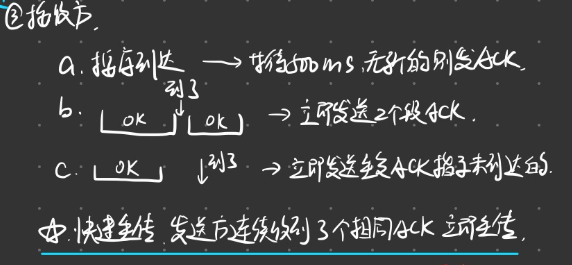 ②接收方.
a. 按序到达 → 等待500ms,无新的则发ACK.
到了
b. OK OK → 立即发送2个段ACK.
c. OK 到了 → 立即发送重复ACK指示未到达的.
☆.快速重传.发送方连续收到3个相同ACK 立即重传.